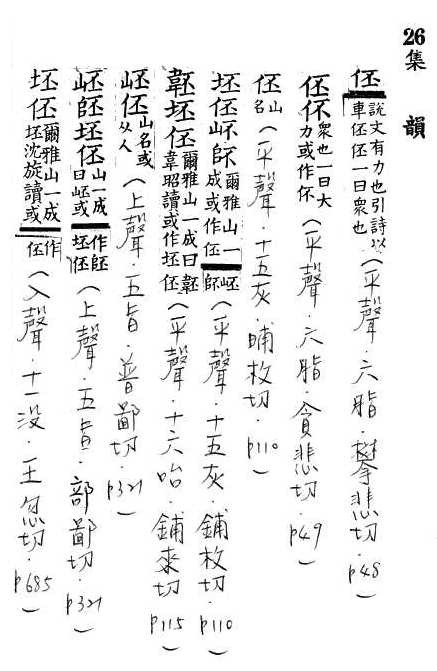 26集　韻
伾 說文有力也引詩以車伾伾一曰衆也（平聲．六脂．攀悲切．p48）
伾伓 衆也一曰大力或作伓（平聲．六脂．貪悲切．p49）
伾 山名（平聲．十五灰．晡枚切．p110）
坯伾㔻 爾雅山一成或作伾（平聲．十五灰．鋪枚切．p110）
坯伾 爾雅山一成曰韋昭讀或作坯伾（平聲．十六咍．鋪來切．p115）
岯伾 山名或从人（上聲．五旨．普鄙切．p321）
岯坯伾 山一成曰岯或作坯伾（上聲．五旨．部鄙切．p321）
坯伾 爾雅山一成坯沈旋讀或作伾（入聲．十一没．王忽切．p685）